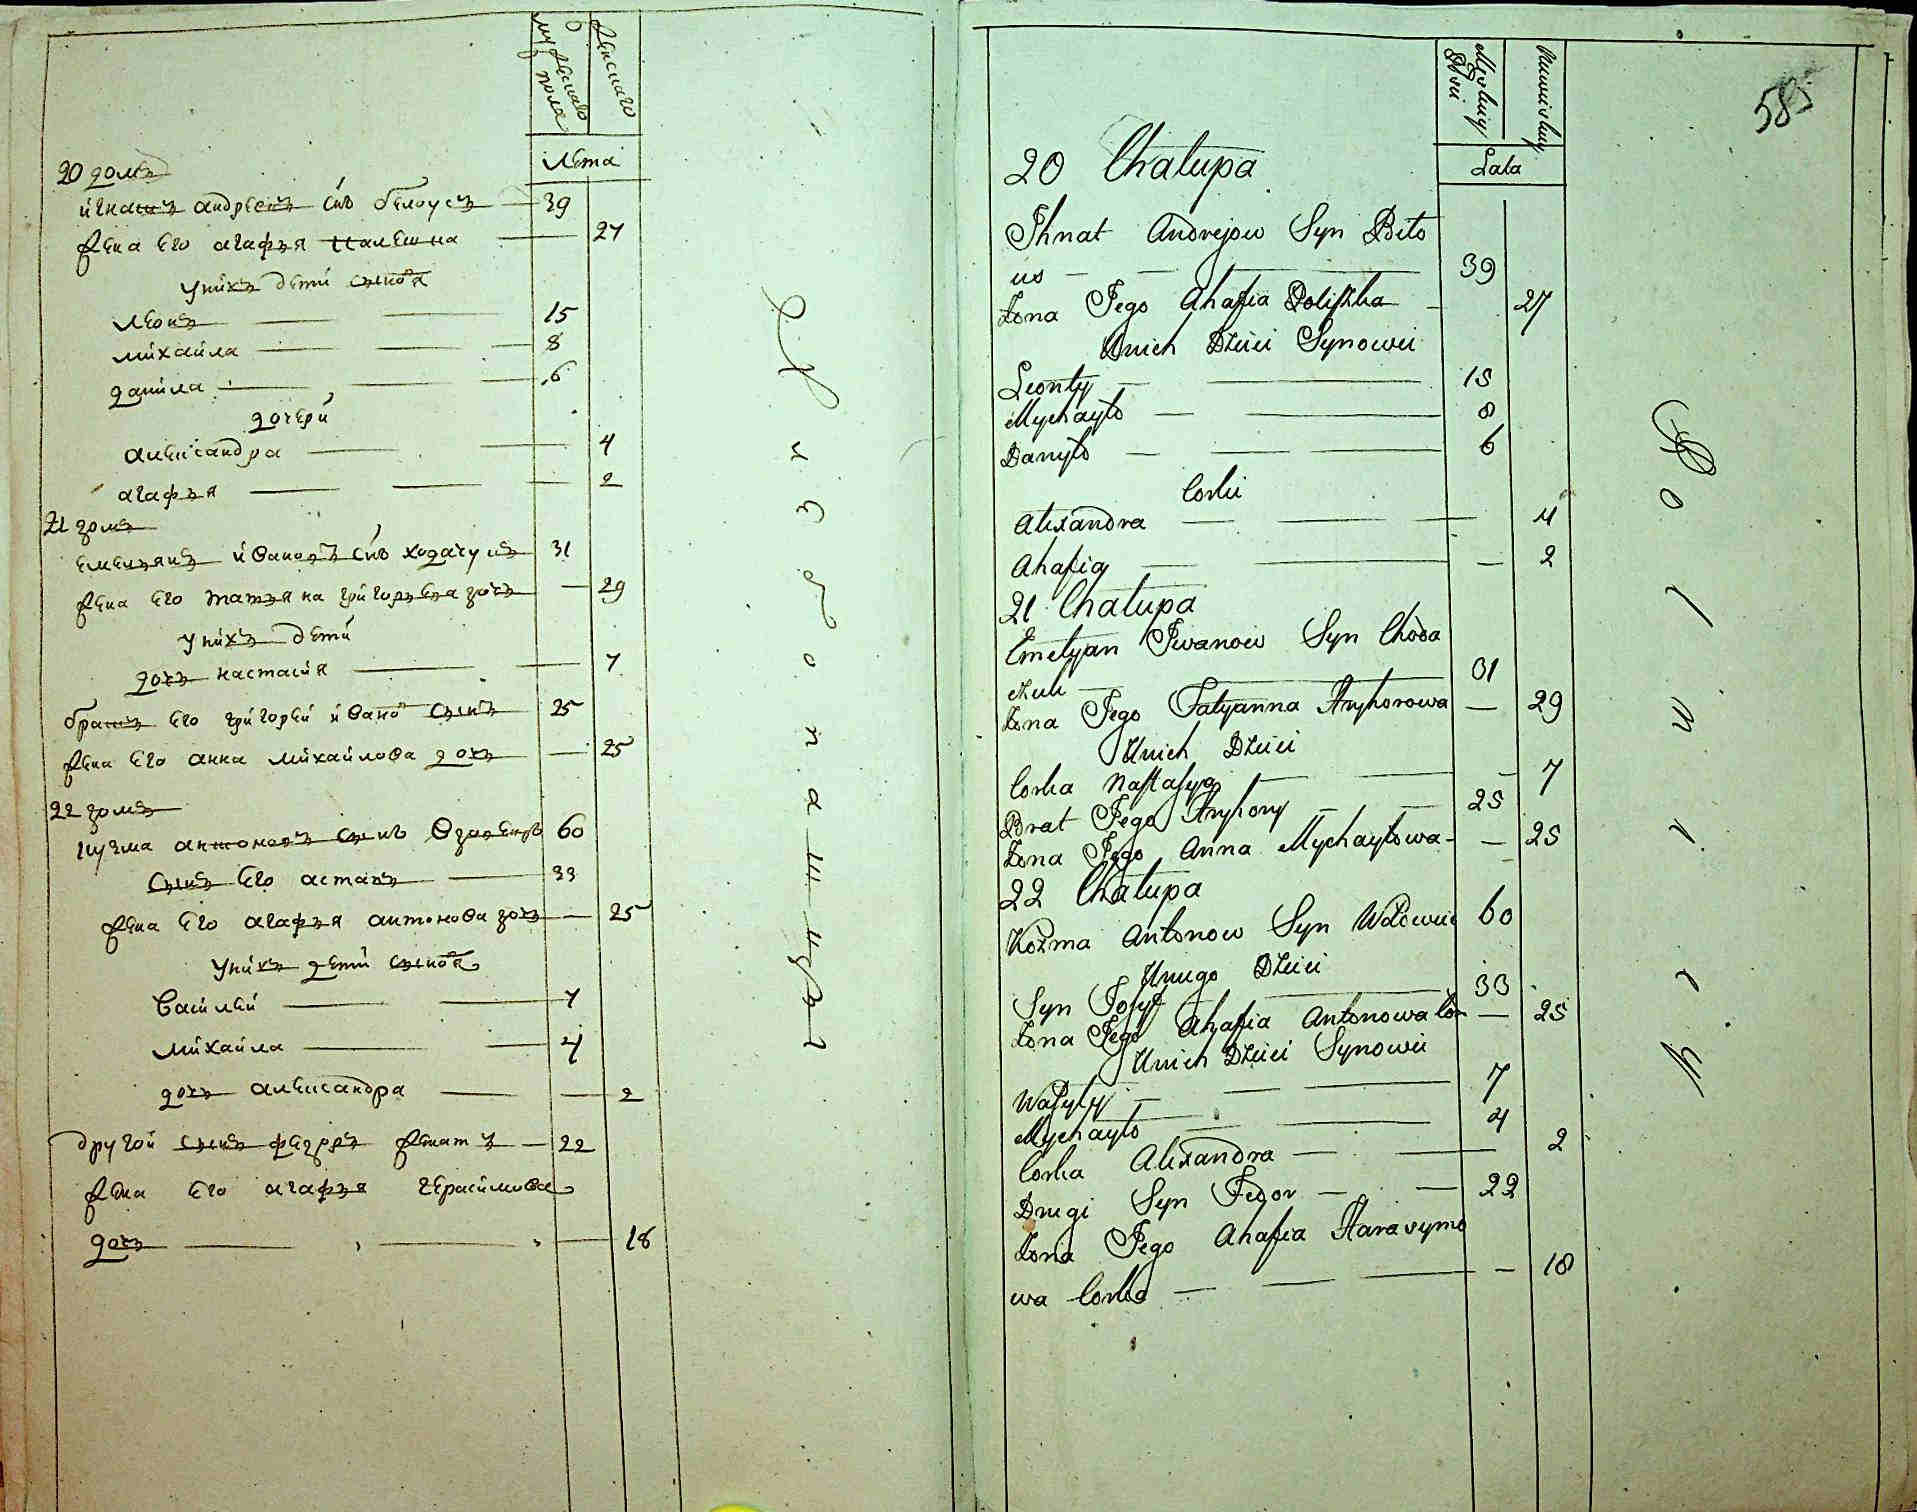 мужеска пола
женскаго
лета
20 домъ
игнатъ андреевъ снъ белоусъ — 39
жена его агафья — 27
унихъ дети сынова
леонъ — 15
михаила — 8
данила — 6
дочери
александра — 4
агафья — 2
21 домъ
емельянъ ивановъ снъ ходачукъ 31
жена его татьяна григорьева дочь — 29
унихъ дети
дочь настасия — 7
братъ его григорей ивано сынъ 25
жена его анна михаилова дочь — 25
22 домъ
кузма антоновъ сынъ 60
сынъ его астапъ — 33
жена его агафья антонова дочь — 25
унихъ дети сынова
василей — 7
михаила — 4
дочь александра — 2
другой сынъ федоръ женатъ — 22
жена его агафья герасимова
дочь — 18
585
Męskiey Płci
Niewieskiey
Lata
20 Chalupa
Ihnat Andrejow Syn Biło
us — 39
Żona Jego Ahafia — 27
Unich Dzieci Synowie
Leonty — 15
Mychayło — 8
Danyło — 6
Corki
Alexandra — 4
Ahafia — 2
21 Chalupa
Emelyan Iwanow Syn Choda
czuk — 31
Żona Jego Tatyanna Hryhorowa — 29
Unich Dzieci
Corka Nastasya — 7
Brat Jego Hryhory — 25
Żona Jego Anna Mychayłowa — 25
22 Chalupa
Kozma Antonow Syn 60
Uniego Dzieci
Syn Josyf — 33
Żona Jego Ahafia Antonowa Cor — 25
Unich Dzieci Synowie
Wasyly — 7
Mychayło — 4
Corka Alexandra — 2
Drugi Syn Fedor — 22
Żona Jego Ahafia Harasymo
wa Corka — 18